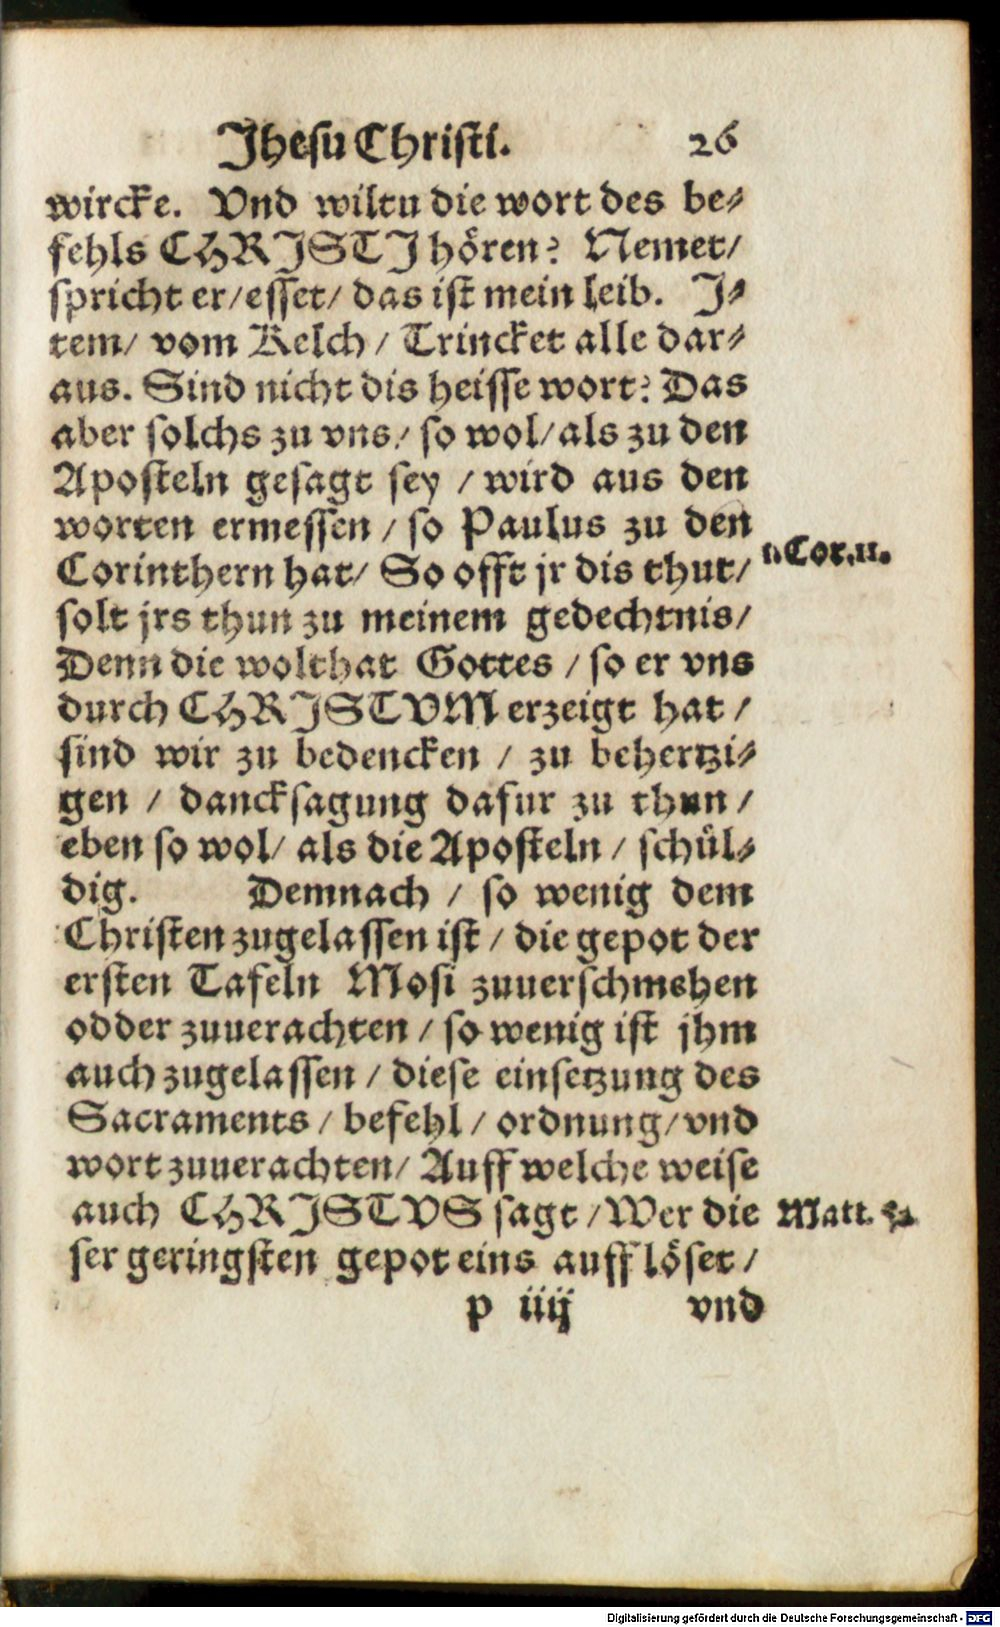 Jhesu Christi. 26
wircke. Vnd wiltu die wort des be⸗
fehls CHRJSTJ hören? Nemet/
spricht er/esset/ das ist mein leib. J⸗
tem/ vom Kelch / Trincket alle dar⸗
aus. Sind nicht dis heisse wort? Das
aber solchs zu vns/ so wol/als zu den
Aposteln gesagt sey / wird aus den
worten ermessen / so Paulus zu den
1.Cor.11.
Corinthern hat/ So offt jr dis thut/
solt jrs thun zu meinem gedechtnis/
Denn die wolthat Gottes / so er vns
durch CHRJSTVM erzeigt hat /
sind wir zu bedencken / zu behertzi⸗
gen / dancksagung dafur zu thun /
eben so wol/ als die Aposteln / schül⸗
dig. Demnach / so wenig dem
Christen zugelassen ist / die gepot der
ersten Tafeln Mosi zuuerschmehen
odder zuuerachten / so wenig ist jhm
auch zugelassen / diese einsetzung des
Sacraments / befehl / ordnung/vnd
wort zuuerachten/ Auff welche weise
auch CHRJSTVS sagt / Wer die Matt.
ser geringsten gepot eins aufflöset /
p iiij vnd
Digitalisierung gefördert durch die Deutsche Forschungsgemeinschaft - DFG